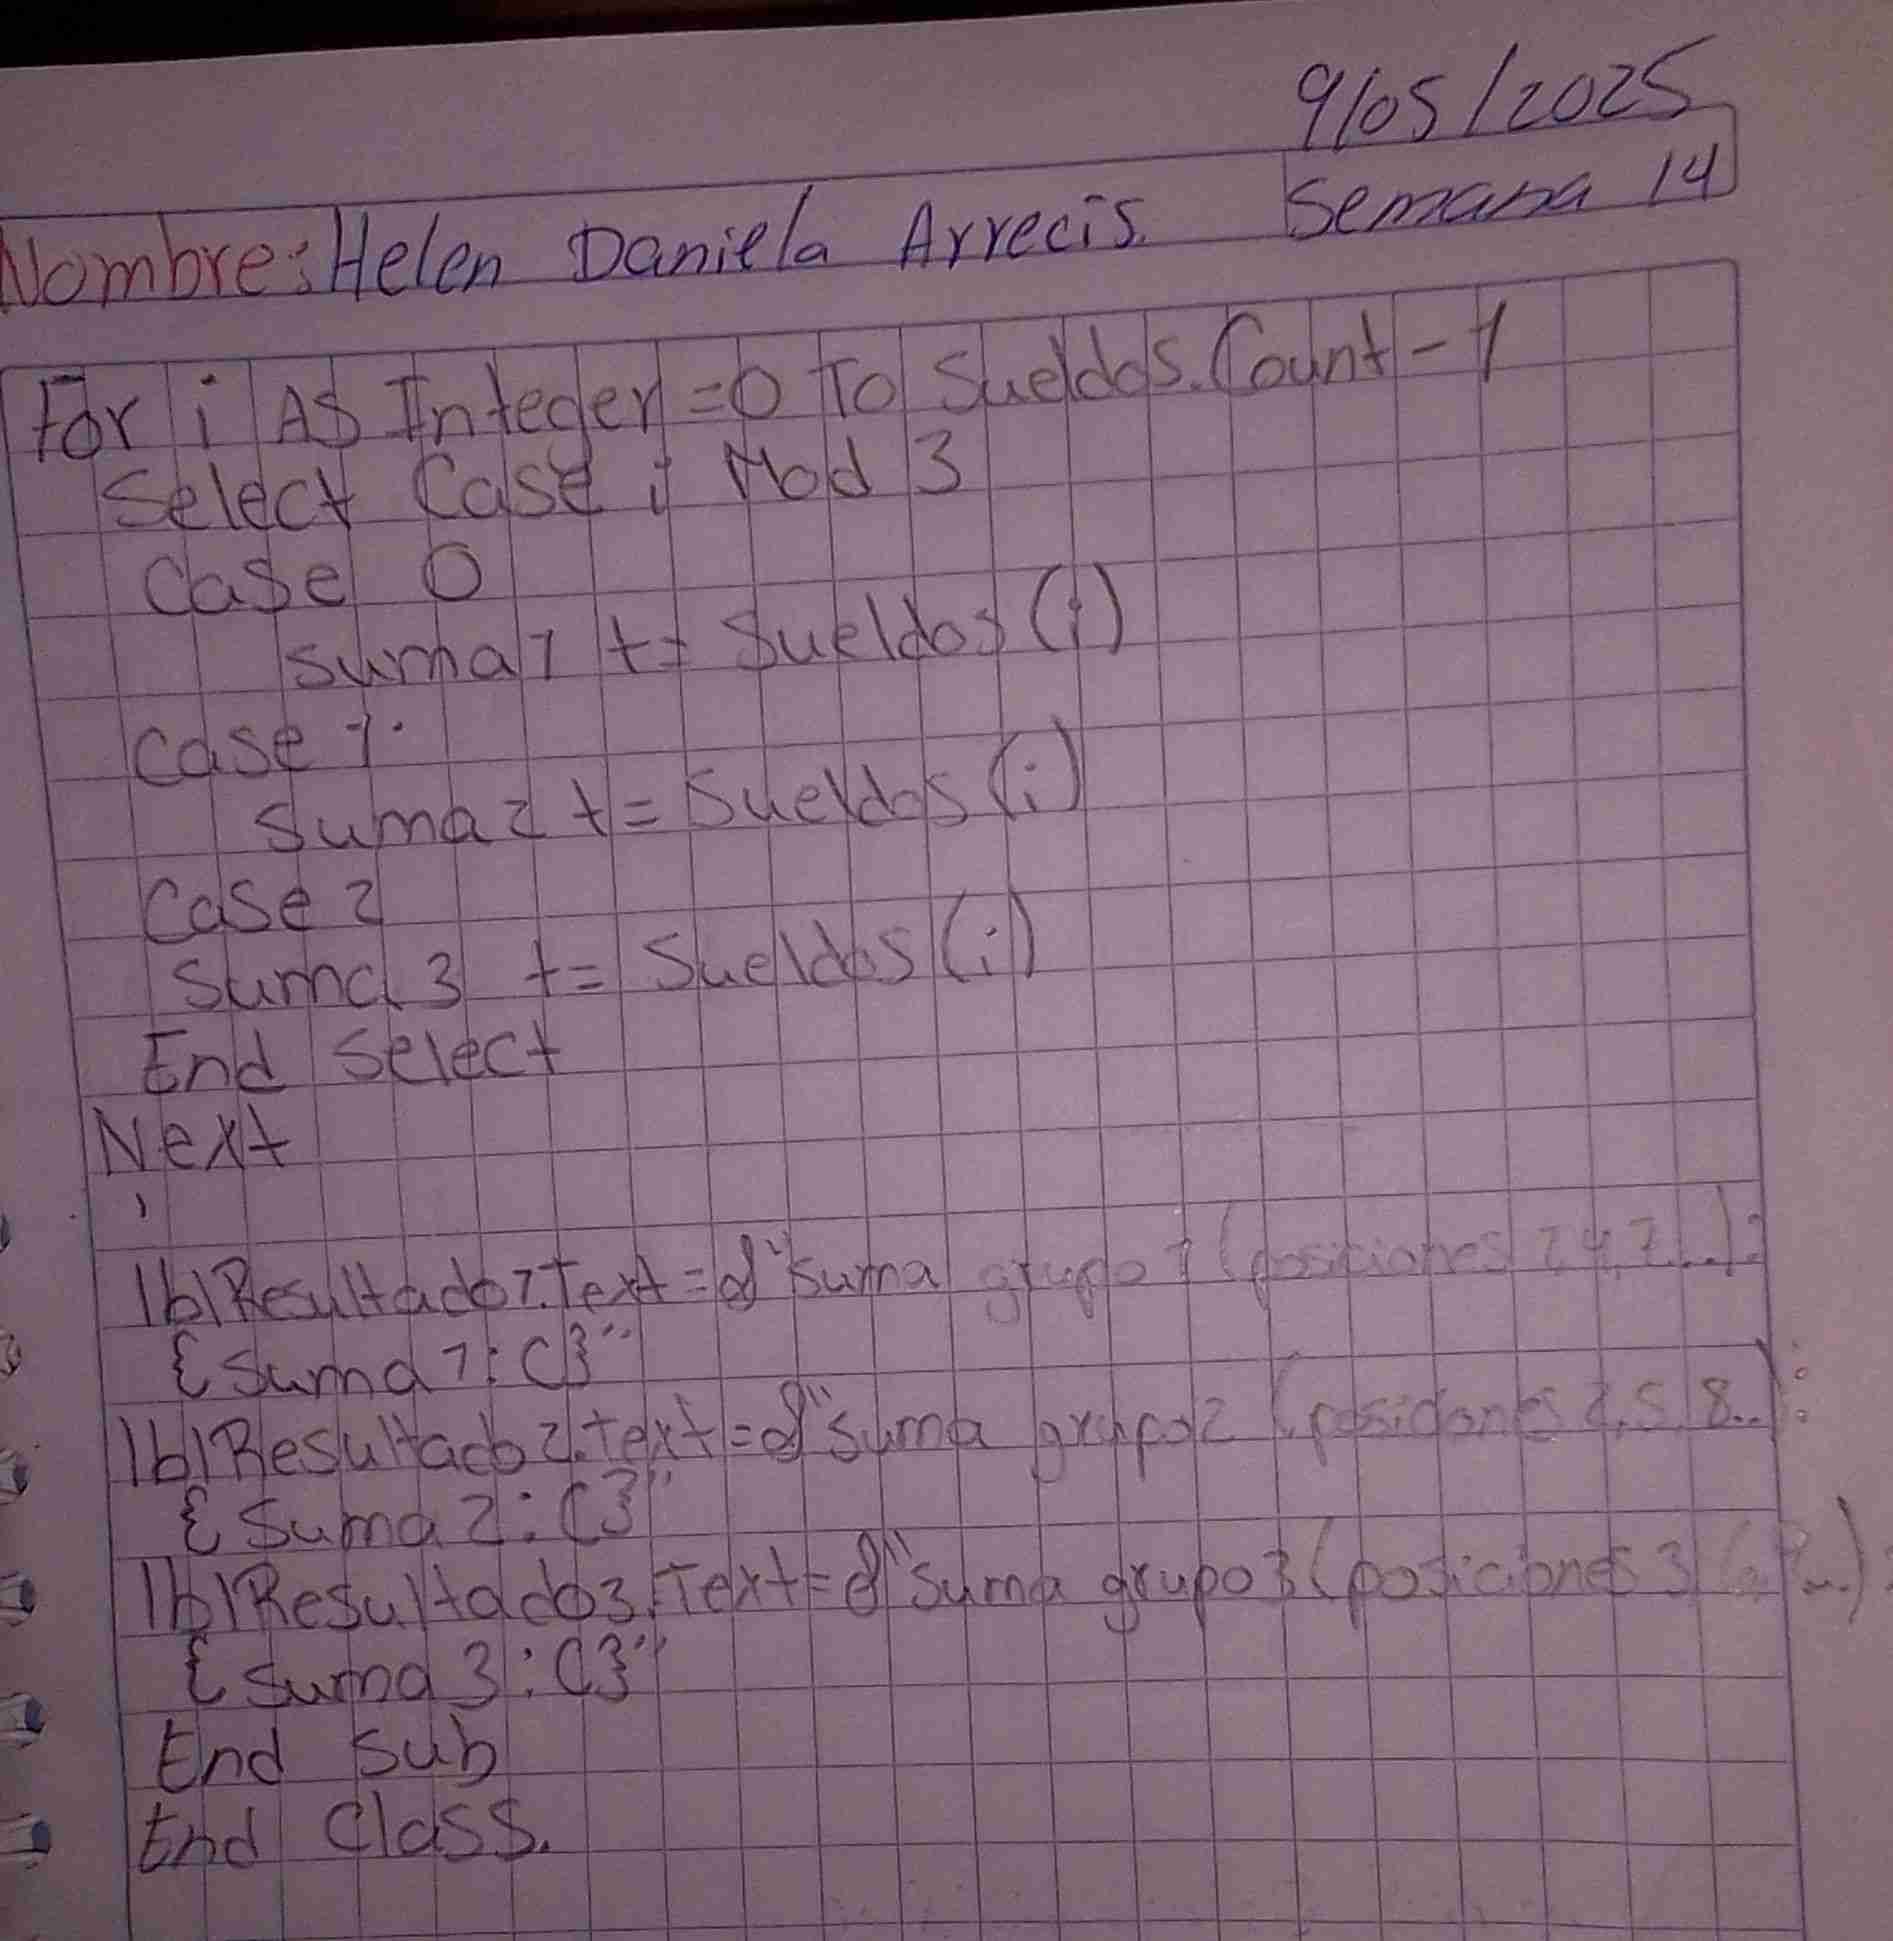 9/05/2025
Nombre: Helen Daniela Arrecis. Semana 14
For i As Integer = 0 To Sueldos.Count - 1
Select Case i Mod 3
Case 0
suma1 += Sueldos (i)
Case 1.
Suma2 += Sueldos (i)
Case 2
Suma 3 += Sueldos (i)
End Select
Next
'
lblResultado1.Text = $"suma grupo 1 (posiciones 1,4,7...):
{Suma1:C}"
lblResultado2.text = $"suma grupo2 (posiciones 2,5,8..):
{Suma2:C}"
lblResultado3.Text = $"suma grupo3 (posiciones 3
{Suma3:C}"
End Sub
End Class.